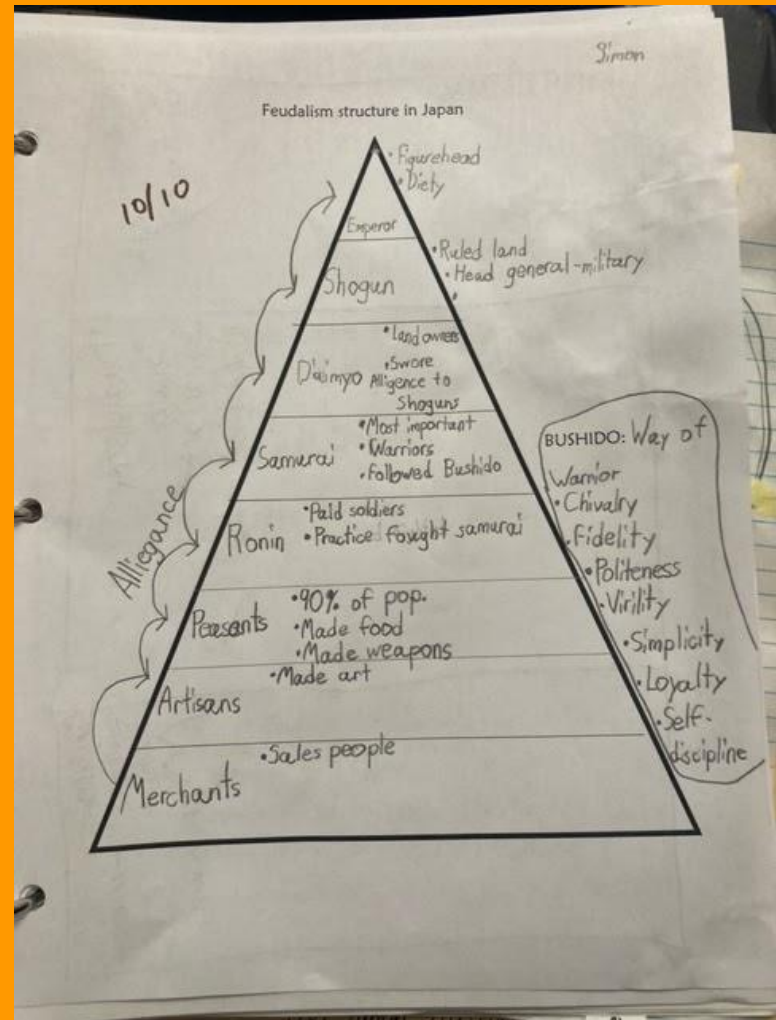 Simon
Feudalism structure in Japan
10/10
• Figurehead
• Diety
Emperor
• Ruled land
• Head general-military
•
Shogun
• Land owners
Daimyo
• Swore
Alligence to
Shoguns
• Most important
Samurai
• Warriors
• Followed Bushido
• Paid soldiers
Ronin
• Practice fought samurai
Peasants
• 90% of pop.
• Made food
• Made weapons
• Made art
Artisans
• Sales people
Merchants
Alliegance
BUSHIDO: Way of
Warrior
• Chivalry
• Fidelity
• Politeness
• Virility
• Simplicity
• Loyalty
• Self-
discipline